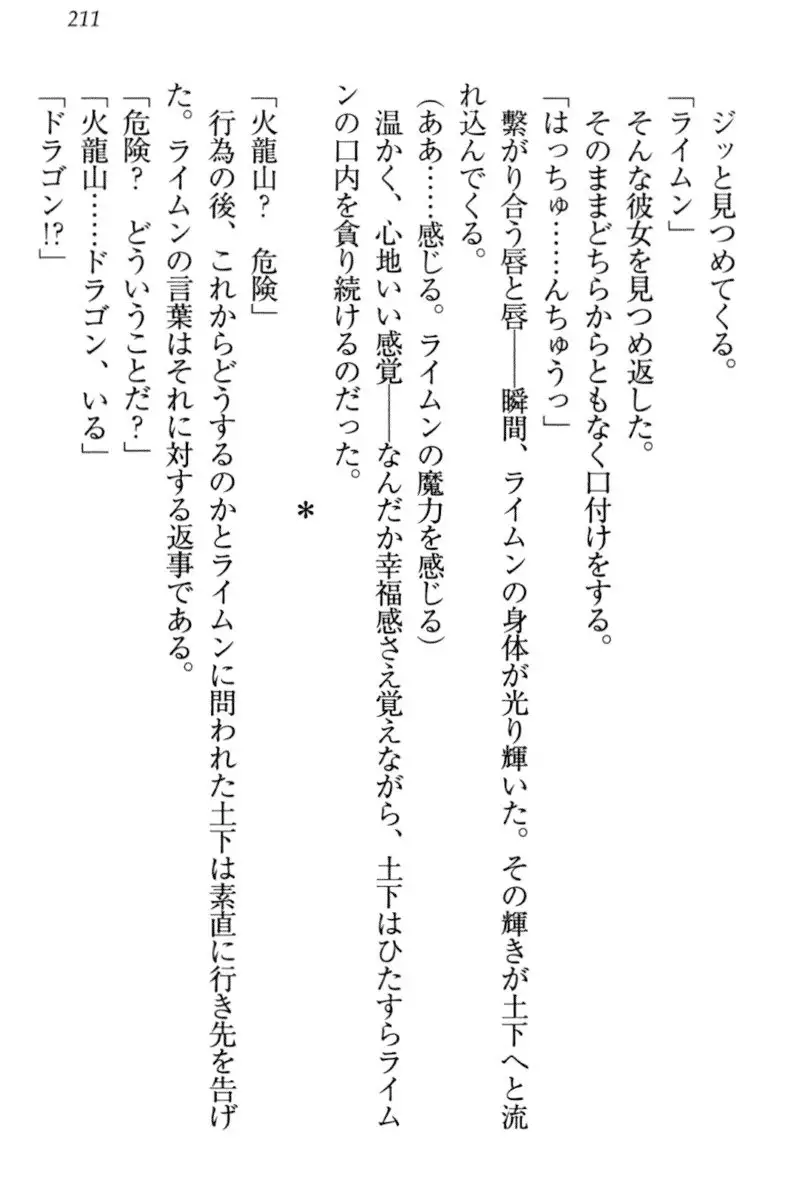 211
ジッと見つめてくる。
「ライムン」
そんな彼女を見つめ返した。
そのままどちらからともなく口付けをする。
「はっちゅ……んちゅうっ」
繋がり合う唇と唇――瞬間、ライムンの身体が光り輝いた。その輝きが土下へと流
れ込んでくる。
（ああ……感じる。ライムンの魔力を感じる）
温かく、心地いい感覚――なんだか幸福感さえ覚えながら、土下はひたすらライム
ンの口内を貪り続けるのだった。
＊
「火龍山？　危険」
行為の後、これからどうするのかとライムンに問われた土下は素直に行き先を告げ
た。ライムンの言葉はそれに対する返事である。
「危険？　どういうことだ？」
「火龍山……ドラゴン、いる」
「ドラゴン!?」